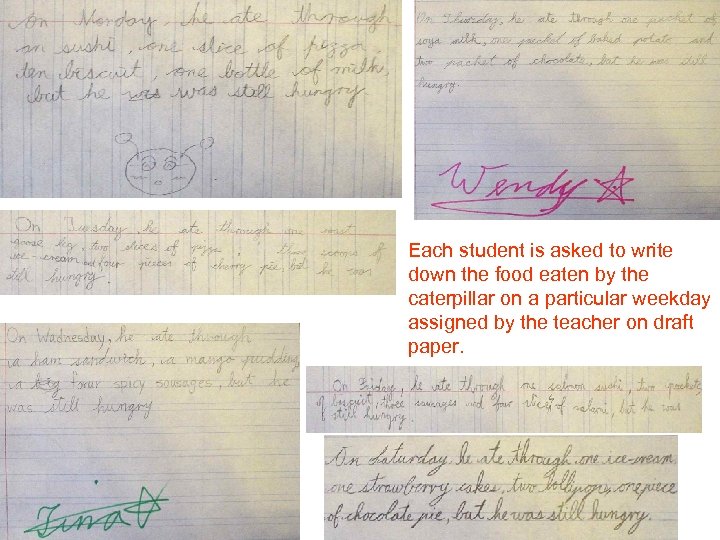 On Monday, he ate through
an sushi, one slice of pizza,
ten biscuit, one bottle of milk,
but he was was still hungry
On Thursday, he ate through one packet of
soya milk, one packet of baked potato and
two packet of chocolate, but he was still
hungry.
Wendy
On Tuesday, he ate through one roast
goose leg, two slices of pizza, three scoons of
ice-cream and four pieces of cherry pie, but he was
still hungry.
Each student is asked to write
down the food eaten by the
caterpillar on a particular weekday
assigned by the teacher on draft
paper.
On Wadnesday, he ate through
a ham sandwich, a mango pudding,
a four spicy sausages, but he
was still hungry
Tina
On Friday, he ate through one salmon sushi, two packets
of besquit, three sausages and four slices of salami, but he was
still hungry.
On Saturday he ate through one ice-cream,
one strawberry cakes, two lollipops, one piece
of chocolate pie, but he was still hungry.